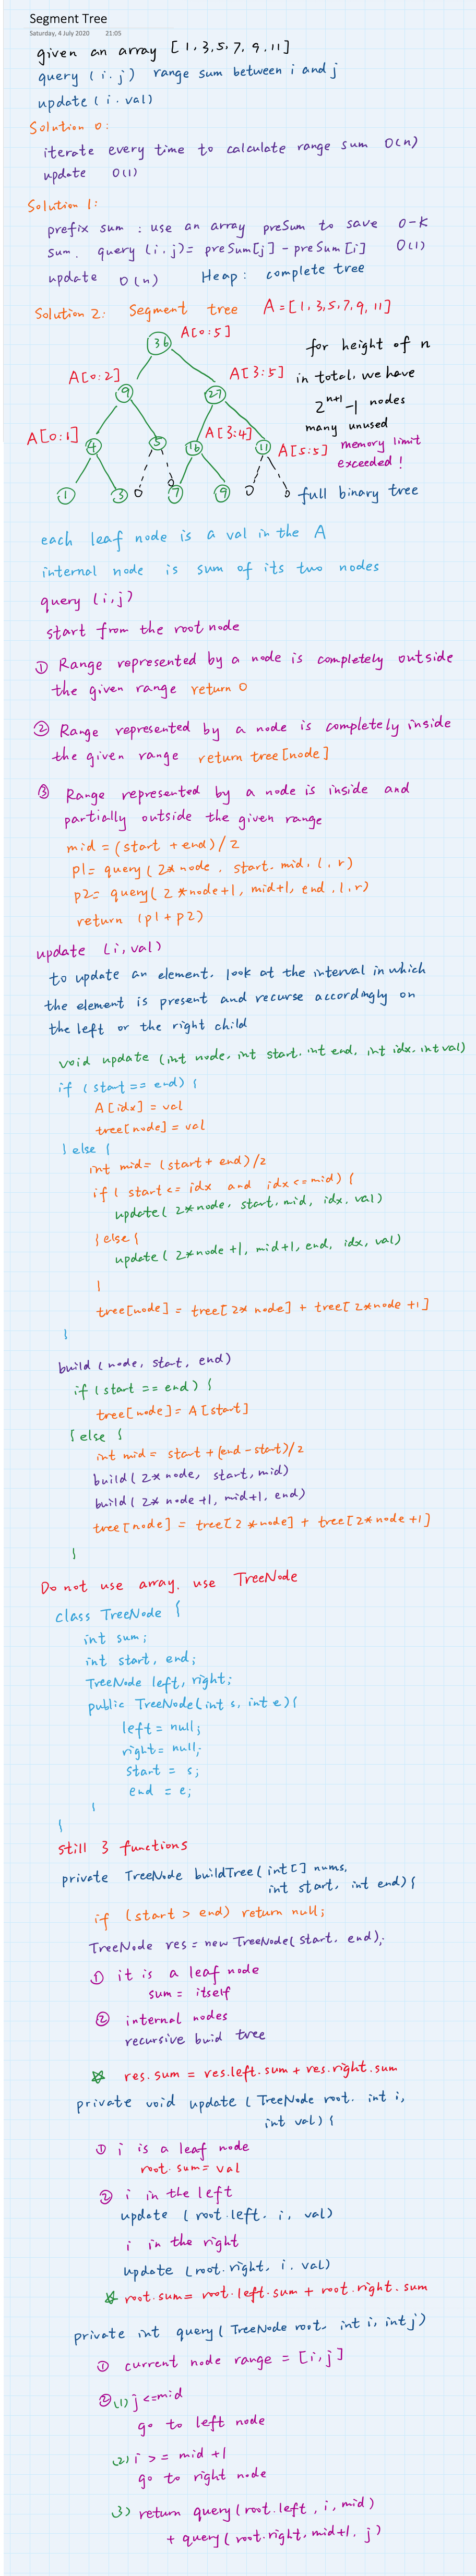 Segment Tree
Saturday, 4 July 2020 21:05
given an array [1,3,5,7,9,11]
query (i.j) range sum between i and j
update (i.val)
Solution 0:
iterate every time to calculate range sum O(n)
update O(1)
Solution 1:
prefix sum : use an array preSum to save 0-K
sum. query (i.j)= preSum[j] - preSum[i] O(1)
update O(n) Heap: complete tree
Solution 2: Segment tree A=[1,3,5,7,9,11]
A[0:5]
36
for height of n
A[0:2] A[3:5] in total, we have
9 27
2^(n+1) -1 nodes
many unused
A[0:1] A[3:4] A[5:5] memory limit
4 5 16 11
exceeded!
1 3 0 0 7 9 0 0 full binary tree
each leaf node is a val in the A
internal node is sum of its two nodes
query (i,j)
start from the root node
① Range represented by a node is completely outside
the given range return 0
② Range represented by a node is completely inside
the given range return tree[node]
③ Range represented by a node is inside and
partially outside the given range
mid = (start + end)/2
p1= query(2*node, start, mid, l, r)
p2= query(2*node+1, mid+1, end, l, r)
return (p1+p2)
update (i,val)
to update an element. look at the interval in which
the element is present and recurse accordingly on
the left or the right child
void update (int node, int start, int end, int idx, int val)
if (start == end) {
A[idx] = val
tree[node] = val
} else {
int mid= (start + end)/2
if( start <= idx and idx<=mid) {
update( 2*node, start, mid, idx, val)
} else {
update( 2*node +1, mid+1, end, idx, val)
}
tree[node] = tree[2* node] + tree[2*node+1]
}
build (node, start, end)
if (start == end) {
tree[node] = A[start]
} else {
int mid = start + (end-start)/2
build( 2* node, start, mid)
build( 2* node +1, mid+1, end)
tree[node] = tree[2*node] + tree[2*node+1]
}
Do not use array. use TreeNode
class TreeNode {
int sum;
int start, end;
TreeNode left, right;
public TreeNode(int s, int e){
left = null;
right= null;
start = s;
end = e;
}
}
still 3 functions
private TreeNode buildTree(int[] nums,
int start, int end){
if (start > end) return null;
TreeNode res = new TreeNode(start, end);
① it is a leaf node
sum = itself
② internal nodes
recursive buid tree
☆ res.sum = res.left.sum + res.right.sum
private void update (TreeNode root. int i,
int val) {
① i is a leaf node
root.sum= val
② i in the left
update (root.left. i, val)
i in the right
update (root.right, i. val)
☆ root.sum= root.left.sum + root.right.sum
private int query( TreeNode root. int i, int j)
① current node range = [i,j]
② (1) j <=mid
go to left node
(2) i >= mid +1
go to right node
(3) return query(root.left, i, mid)
+ query(root.right, mid+1, j)